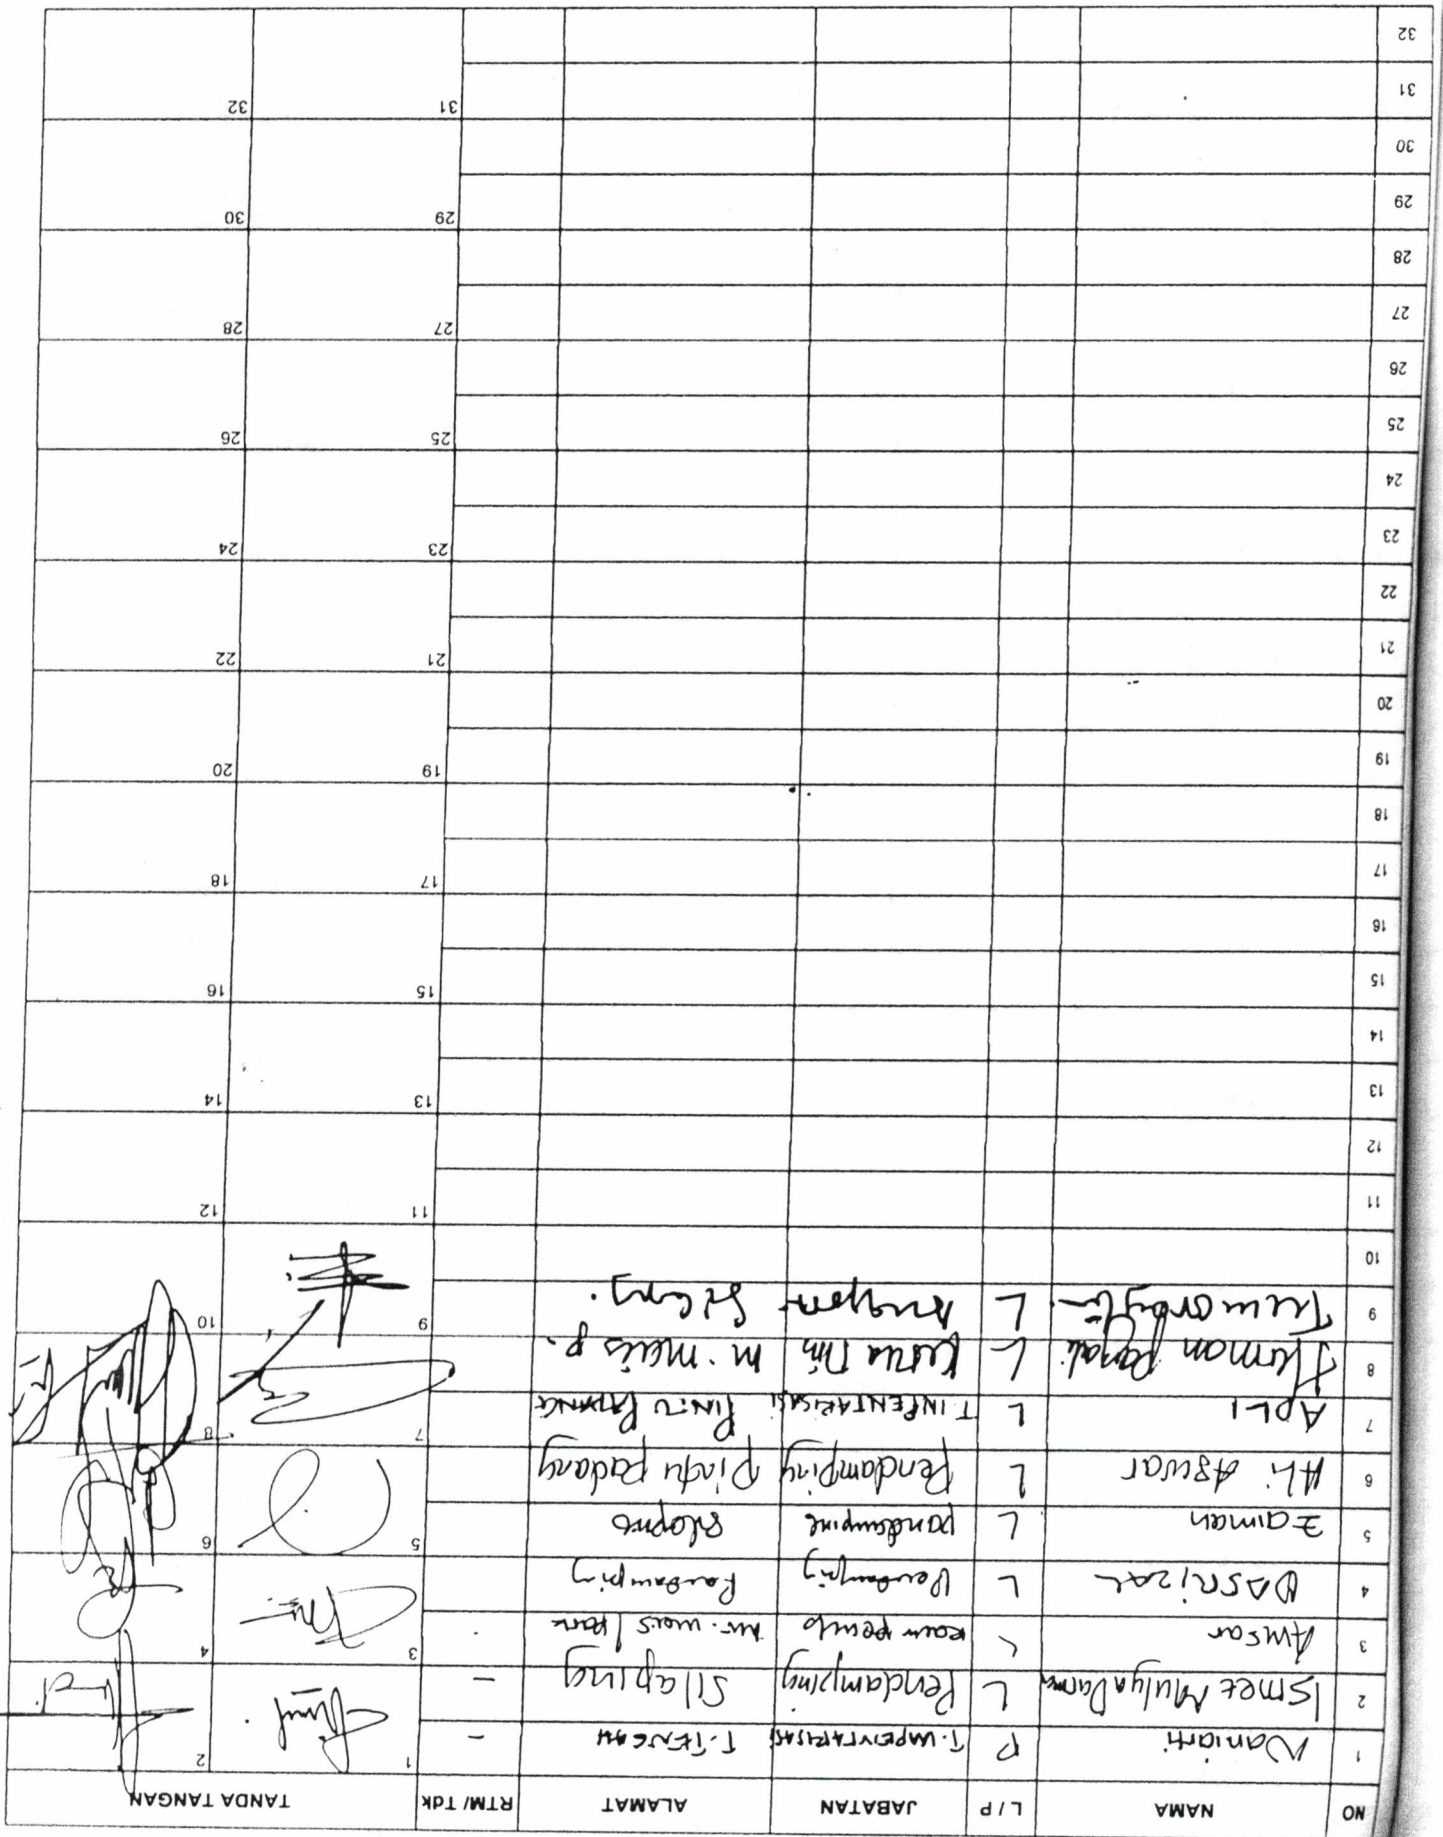 NO NAMA L / P JABATAN ALAMAT RTM/ Tdk TANDA TANGAN
1 Naniarti P T. INPENTARISASI T. TENGAH - 1 2
2 Ismet Mulya Darma L Pendamping Silaping -
3 Amsar L 3 4
4 DASRIZAL L Pendamping Pendamping
5 Zaiman L pendamping 5 6
6 Ali Aswar L Pendamping Pintu padang
7 APLI L T. INPENTARISASI PINTU PADANG 7 8
8 Herman L Ketua
9 L 9 10
10
11 11 12
12
13 13 14
14
15 15 16
16
17 17 18
18
19 19 20
20
21 21 22
22
23 23 24
24
25 25 26
26
27 27 28
28
29 29 30
30
31 31 32
32